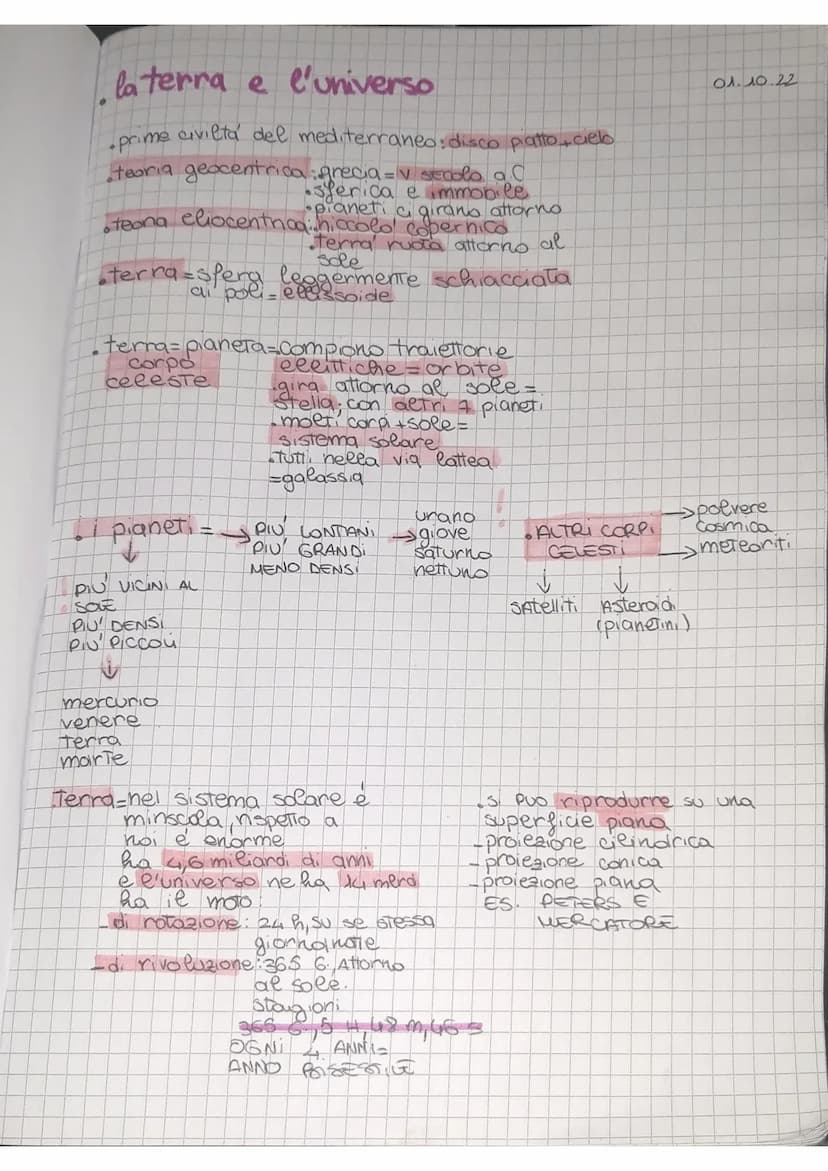 . la terra e l'universo
01.10.22
.prime civiltà del mediterraneo: disco piatto + cielo
.teoria geocentrica: grecia = V secolo a.C
.sferica e immobile
.pianeti ci girano attorno
.teoria eliocentrica: niccolo' copernico
.terra ruota attorno al
sole
.terra = sfera leggermente schiacciata
ai poli = elissoide
. terra = pianeta = compiono traiettorie
corpo
celeste
ellittiche = orbite
.gira attorno al sole =
stella, con altri 7 pianeti
.molti corpi + sole =
sistema solare
.tutti nella via lattea
= galassia
. i pianeti = → PIU' LONTANI
PIU' GRANDI
MENO DENSI
→ urano
giove
saturno
nettuno
↓
PIU' VICINI AL
SOLE
PIU' DENSI
PIU' PICCOLI
↓
mercurio
venere
terra
marte
. ALTRI CORPI
CELESTI
→ polvere
cosmica
→ meteoriti
↓ ↓
SATELLITI Asteroidi
(pianetini)
Terra = nel sistema solare é
minscola, rispetto a
noi é enorme
ha 4,6 miliardi di anni
e l'universo ne ha 14 merd
ha il moto:
- di rotazione: 24 h, su se stessa
giorno/notte
- di rivoluzione: 365 G., Attorno
al sole.
stagioni
365 G., 5 H, 48 m, 46 s
OGNI 4 ANNI =
ANNO BISESTILE
. si puo riprodurre su una
superficie piana
- proiezione cilindrica
- proiezione conica
- proiezione piana
ES. PETERS E
MERCATORE